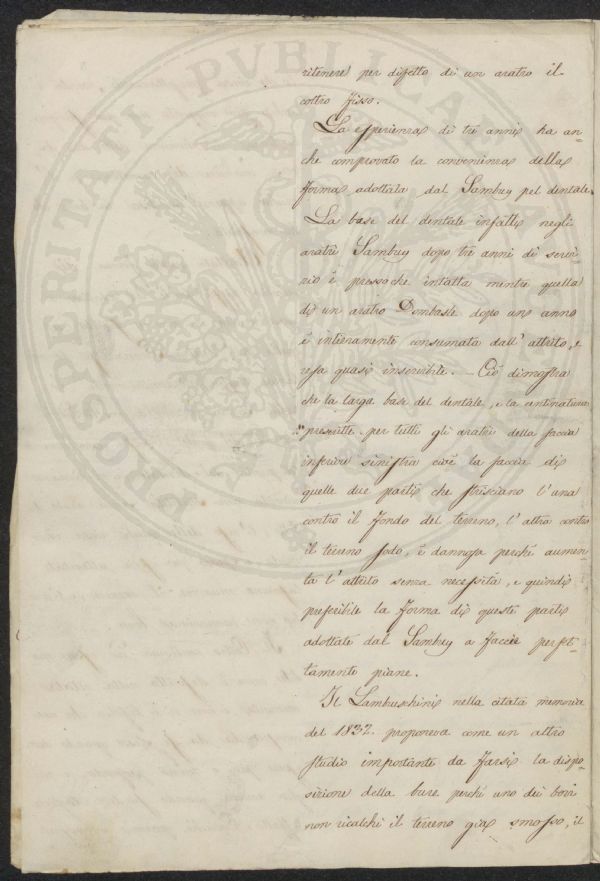 ritenere per difetto di un aratro il
coltro fisso.
La esperienza di tre anni ha an-
che comprovato la convenienza della
forma adottata dal Sambuy pel dentale.
La base del dentale infatti negli
aratri Sambuy dopo tre anni di servi-
zio è pressochè intatta mentre quella
di un aratro Dombasle dopo uno anno
è intieramente consumata dall' attrito, e
resa quasi inservibile. — Ciò dimostra
che la larga base del dentale, e la
prescritte per tutti gli aratri della faccia
inferiore sinistra cioè la faccia di
quelle due parti che strisciano l'una
contro il fondo del terreno, l'altra contro
il terreno sodo, è dannosa perchè aumen-
ta l'attrito senza necessità, e quindi
preferibile la forma di queste parti
adottate dal Sambuy a faccie perfet-
tamente piane.
Il Lambruschini nella citata memoria
del 1832. proponeva come un altro
studio importante da farsi la dispo-
sizione della bure perchè uno dei bovi
non ricalchi il terreno già smosso, il
PROSPERITATI PVBLICAE